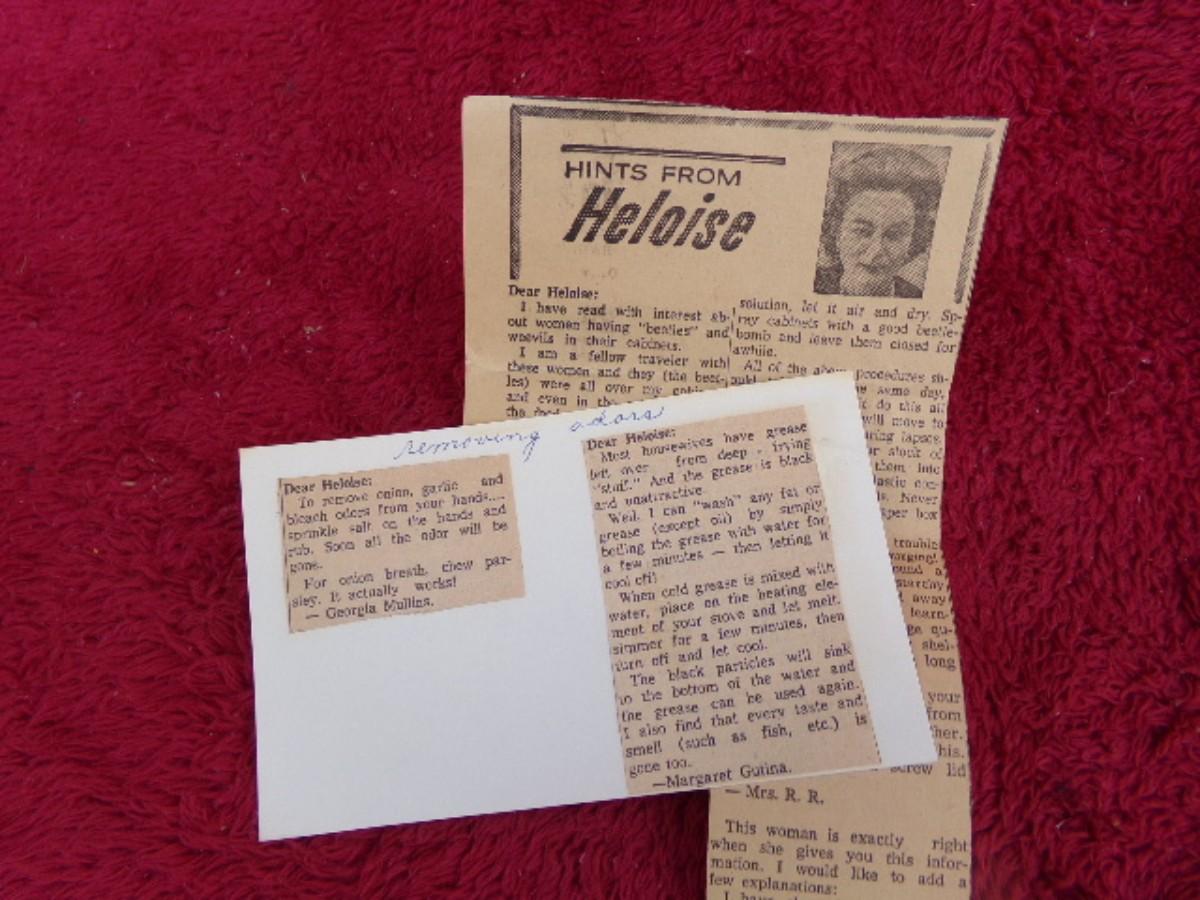 HINTS FROM
Heloise
Dear Heloise:
I have read with interest ab-
out women having "beatles" and
weevils in their cabinets.
I am a fellow traveler with
these women and they (the beet-
les) were all over my
and even in the
solution, let it air and dry. Sp-
ray cabinets with a good beetle-
bomb and leave them closed for
awhile.
All of the above procedures sh-
same day.
do this all
will move to
lapses.
stock of
them into
con-
Never
box
trouble
a
away
learn-
qu-
shel-
long
your
from
screw lid
— Mrs. R. R.
This woman is exactly right
when she gives you this infor-
mation. I would like to add a
few explanations:
removing odors
Dear Heloise:
To remove onion, garlic and
bleach odors from your hands....
sprinkle salt on the hands and
rub. Soon all the odor will be
gone.
For onion breath, chew par-
sley. It actually works!
— Georgia Mullins.
Dear Heloise:
Most housewives have grease
left over from deep - frying
"stuff." And the grease is black
and unattractive.
Well, I can "wash" any fat or
grease (except oil) by simply
boiling the grease with water for
a few minutes — then letting it
cool off!
When cold grease is mixed with
water, place on the heating ele-
ment of your stove and let melt.
simmer for a few minutes, then
turn off and let cool.
The black particles will sink
to the bottom of the water and
the grease can be used again.
I also find that every taste and
smell (such as fish, etc.) is
gone too.
—Margaret Gutina.